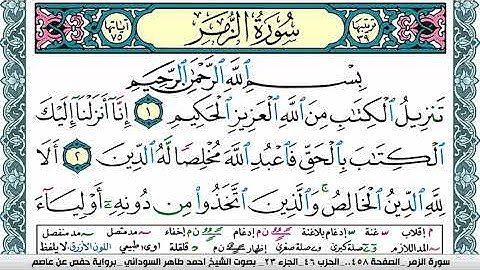 ترتيبها ٣٩ سُورَةُ الزُّمَرِ آياتها ٧٥
بِسْمِ ٱللَّهِ ٱلرَّحْمَٰنِ ٱلرَّحِيمِ
تَنزِيلُ ٱلْكِتَٰبِ مِنَ ٱللَّهِ ٱلْعَزِيزِ ٱلْحَكِيمِ ١ إِنَّآ أَنزَلْنَآ إِلَيْكَ
ٱلْكِتَٰبَ بِٱلْحَقِّ فَٱعْبُدِ ٱللَّهَ مُخْلِصًا لَّهُ ٱلدِّينَ ٢ أَلَا
لِلَّهِ ٱلدِّينُ ٱلْخَالِصُ ۚ وَٱلَّذِينَ ٱتَّخَذُوا۟ مِن دُونِهِۦٓ أَوْلِيَآءَ
م إقلاب غنة إدغام بلاغنة إدغام إخفاء مد متصل مد منفصل
المد اللازم صلة كبرى صلة صغرى إظهار قلقلة طبيعي اللون الأزرق، لا يلفظ
سورة الزمر _ الصفحة ٤٥٨.. الحزب ٤٦_ الجزء ٢٣ _ بصوت الشيخ احمد طاهر السوداني _ برواية حفص عن عاصم